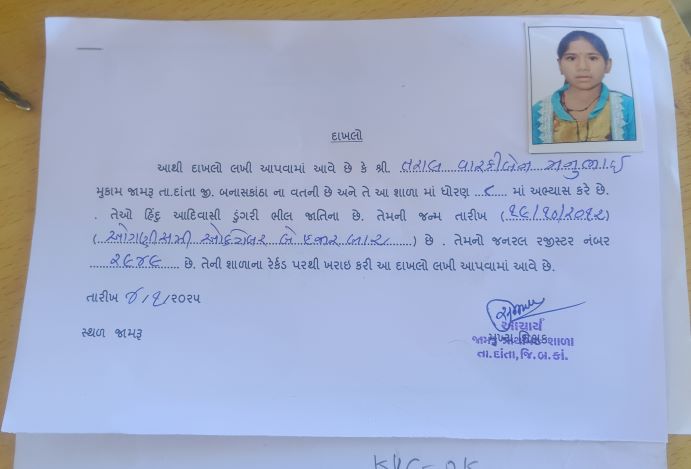 દાખલો
આથી દાખલો લખી આપવામાં આવે છે કે શ્રી. તરાલ વારકીબેન મનુભાઈ
મુકામ જામરૂ તા.દાંતા જી. બનાસકાંઠા ના વતની છે અને તે આ શાળા માં ધોરણ ..૮.. માં અભ્યાસ કરે છે.
. તેઓ હિંદુ આદિવાસી ડુંગરી ભીલ જાતિના છે. તેમની જન્મ તારીખ (૧૯/૧૦/૨૦૧૨)
( ઓગણીસમી ઓકટોબર બે હજાર બાર ) છે . તેમનો જનરલ રજીસ્ટર નંબર
૨૬૪૬ છે. તેની શાળાના રેર્કડ પરથી ખરાઇ કરી આ દાખલો લખી આપવામાં આવે છે.
તારીખ ૪/૧/૨૦૨૫
સ્થળ જામરૂ
આચાર્ય
મુખ્ય શિક્ષક
જામરૂ પ્રાથમિક શાળા
તા.દાંતા, જિ.બ.કાં.